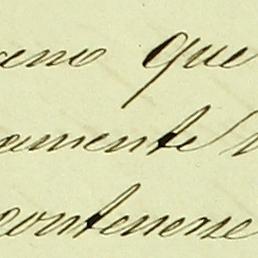 eno que
amente
contenerse